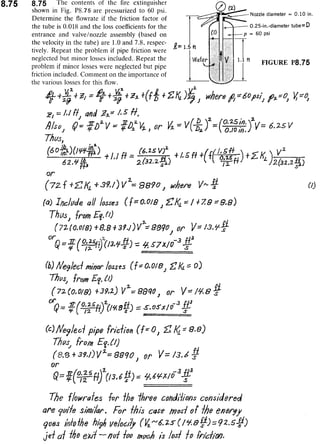 8.75
8.75 The contents of the fire extinguisher
shown in Fig. P8.75 are pressurized to 60 psi.
Determine the flowrate if the friction factor of
the tube is 0.018 and the loss coefficients for the
entrance and valve/nozzle assembly (based on
the velocity in the tube) are 1.0 and 7.8, respec-
tively. Repeat the problem if pipe friction were
neglected but minor losses included. Repeat the
problem if minor losses were neglected but pipe
friction included. Comment on the importance of
the various losses for this flow.
(2)
Nozzle diameter ~ 0.10 in.
0.25-in.-diameter tube = D
p = 60 psi
(1)
ℓ = 1.5 ft
Water
V
1.1 ft
FIGURE P8.75
p₁/γ + V₁²/2g + z₁ = p₂/γ + V₂²/2g + z₂ + (f ℓ/D + ΣK_L) V²/2g, where p₁ = 60 psi, p₂ = 0, V₁ = 0,
z₁ = 1.1 ft, and z₂ = 1.5 ft.
Also, Q = π/4 D²V = π/4 D₂²V₂, or V₂ = V(D/D₂)² = (0.25 in./0.10 in.)² V = 6.25 V
Thus,
(60 lb/in²)(144 in²/ft²)/62.4 lb/ft³ + 1.1 ft = (6.25V)²/2(32.2 ft/s²) + 1.5 ft + (f (1.5 ft)/(0.25/12 ft) + ΣK_L) V²/2(32.2 ft/s²)
or
(72 f + ΣK_L + 39.1) V² = 8890, where V ~ ft/s (1)
(a) Include all losses (f = 0.018, ΣK_L = 1 + 7.8 = 8.8)
Thus, from Eq. (1)
(72(0.018) + 8.8 + 39.1) V² = 8890, or V = 13.4 ft/s
or
Q = π/4 (0.25/12 ft)² (13.4 ft/s) = 4.57×10⁻³ ft³/s
(b) Neglect minor losses (f = 0.018, ΣK_L = 0)
Thus, from Eq. (1)
(72(0.018) + 39.1) V² = 8890, or V = 14.8 ft/s
or
Q = π/4 (0.25/12 ft)² (14.8 ft/s) = 5.05×10⁻³ ft³/s
(c) Neglect pipe friction (f = 0, ΣK_L = 8.8)
Thus, from Eq. (1)
(8.8 + 39.1) V² = 8890, or V = 13.6 ft/s
or
Q = π/4 (0.25/12 ft)² (13.6 ft/s) = 4.64×10⁻³ ft³/s
The flowrates for the three conditions considered
are quite similar. For this case most of the energy
goes into the high velocity (V₂ = 6.25 (14.8 ft/s) = 92.5 ft/s)
jet at the exit — not too much is lost to friction.